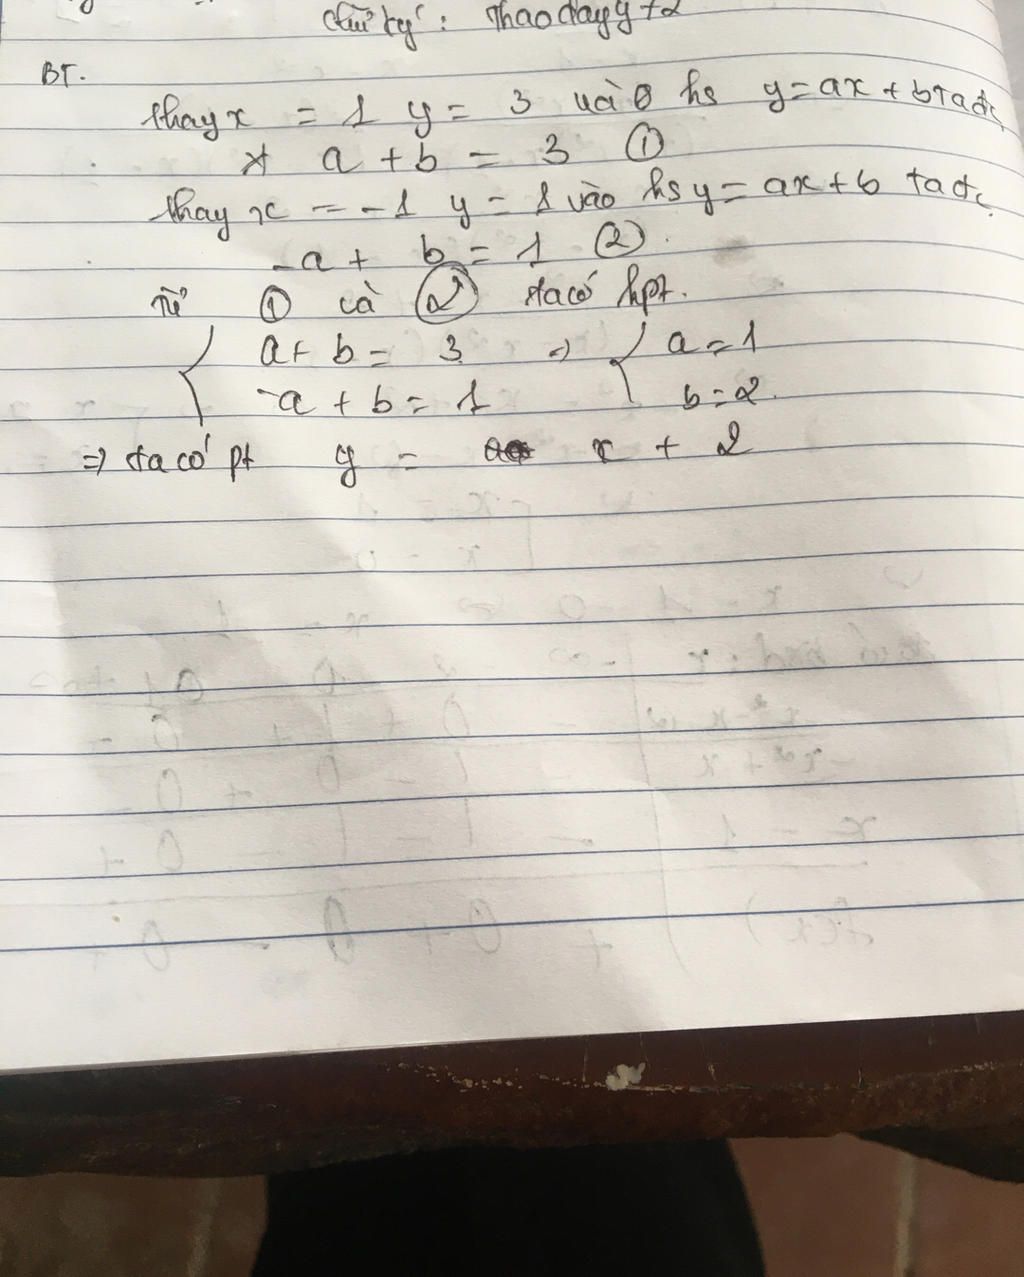 chữ ký : Thaodayy +2
BT.
thay x = 1 y = 3 vào hs y = ax + b ta đc
a + b = 3 ①
thay x = -1 y = 1 vào hs y = ax + b ta đc
-a + b = 1 ②.
từ ① cà ② ta có hpt.
{ a + b = 3 => { a = 1
-a + b = 1 b = 2.
=> ta có pt y = x + 2